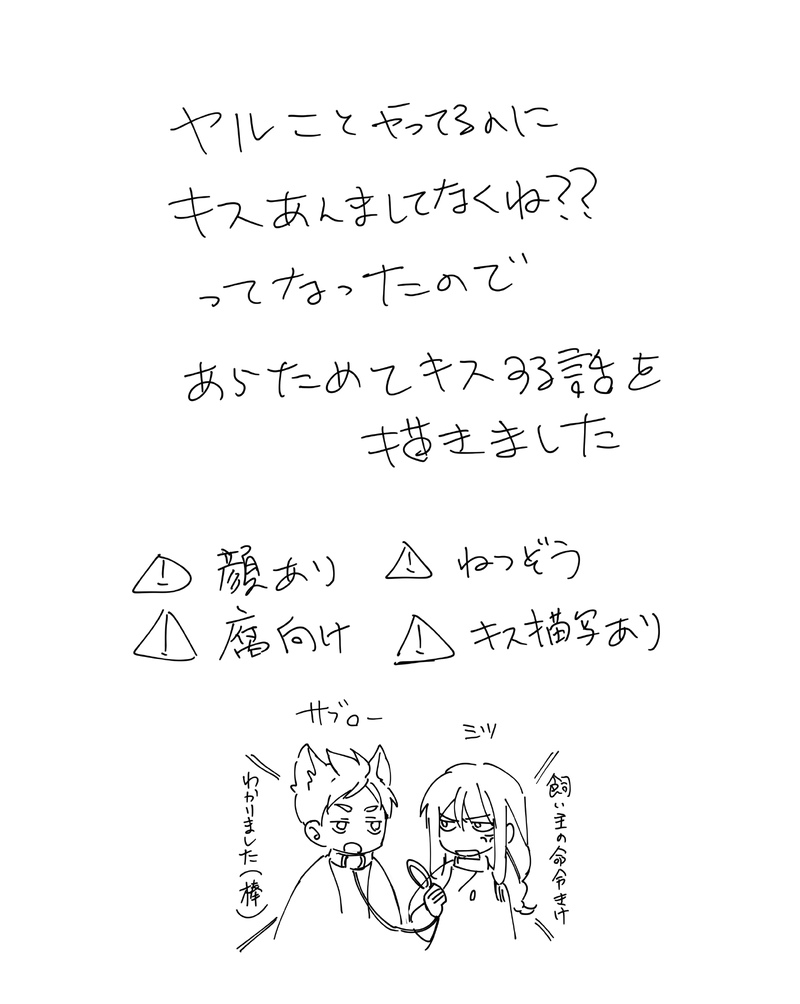 ヤルことやってるのに
キスあんましてなくね??
ってなったので
あらためてキスする話を
描きました
顔あり
ねつぞう
腐向け
キス描写あり
サブロー
ミツ
飼い主の命令きけ
わかりました(棒)